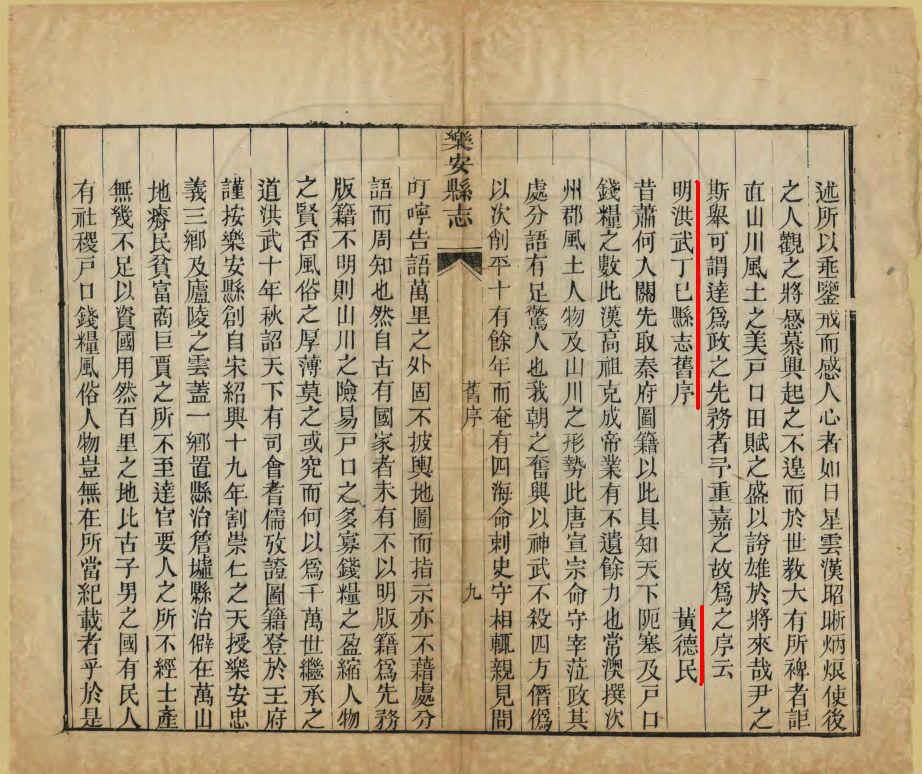 述所以垂鑒戒而感人心者如日星雲漢昭晰炳烺使後
之人觀之將感慕興起之不遑而於世教大有所裨者詎
直山川風土之美戸口田賦之盛以誇雄於將來哉尹之
斯舉可謂達爲政之先務者予重嘉之故爲之序云
明洪武丁巳縣志舊序 黃德民
昔蕭何入關先取秦府圖籍以此具知天下阨塞及戸口
錢糧之數此漢高祖克成帝業有不遺餘力也常澳撰次
州郡風土人物及山川之形勢此唐宣宗命守宰蒞政其
處分語有足驚人也我朝之奮興以神武不殺四方僭僞
以次削平十有餘年而奄有四海命刺史守相輒親見問
樂安縣志 舊序 九
叮嚀告語萬里之外固不披輿地圖而指示亦不藉處分
語而周知也然自古有國家者未有不以明版籍爲先務
版籍不明則山川之險易戸口之多寡錢糧之盈縮人物
之賢否風俗之厚薄莫之或究而何以爲千萬世繼承之
道洪武十年秋詔天下有司會耆儒攷證圖籍登於王府
謹按樂安縣創自宋紹興十九年割崇仁之天授樂安忠
義三鄉及廬陵之雲蓋一鄉置縣治詹墟縣治僻在萬山
地瘠民貧富商巨賈之所不至達官要人之所不經士產
無幾不足以資國用然百里之地比古子男之國有民人
有社稷戸口錢糧風俗人物豈無在所當紀載者乎於是